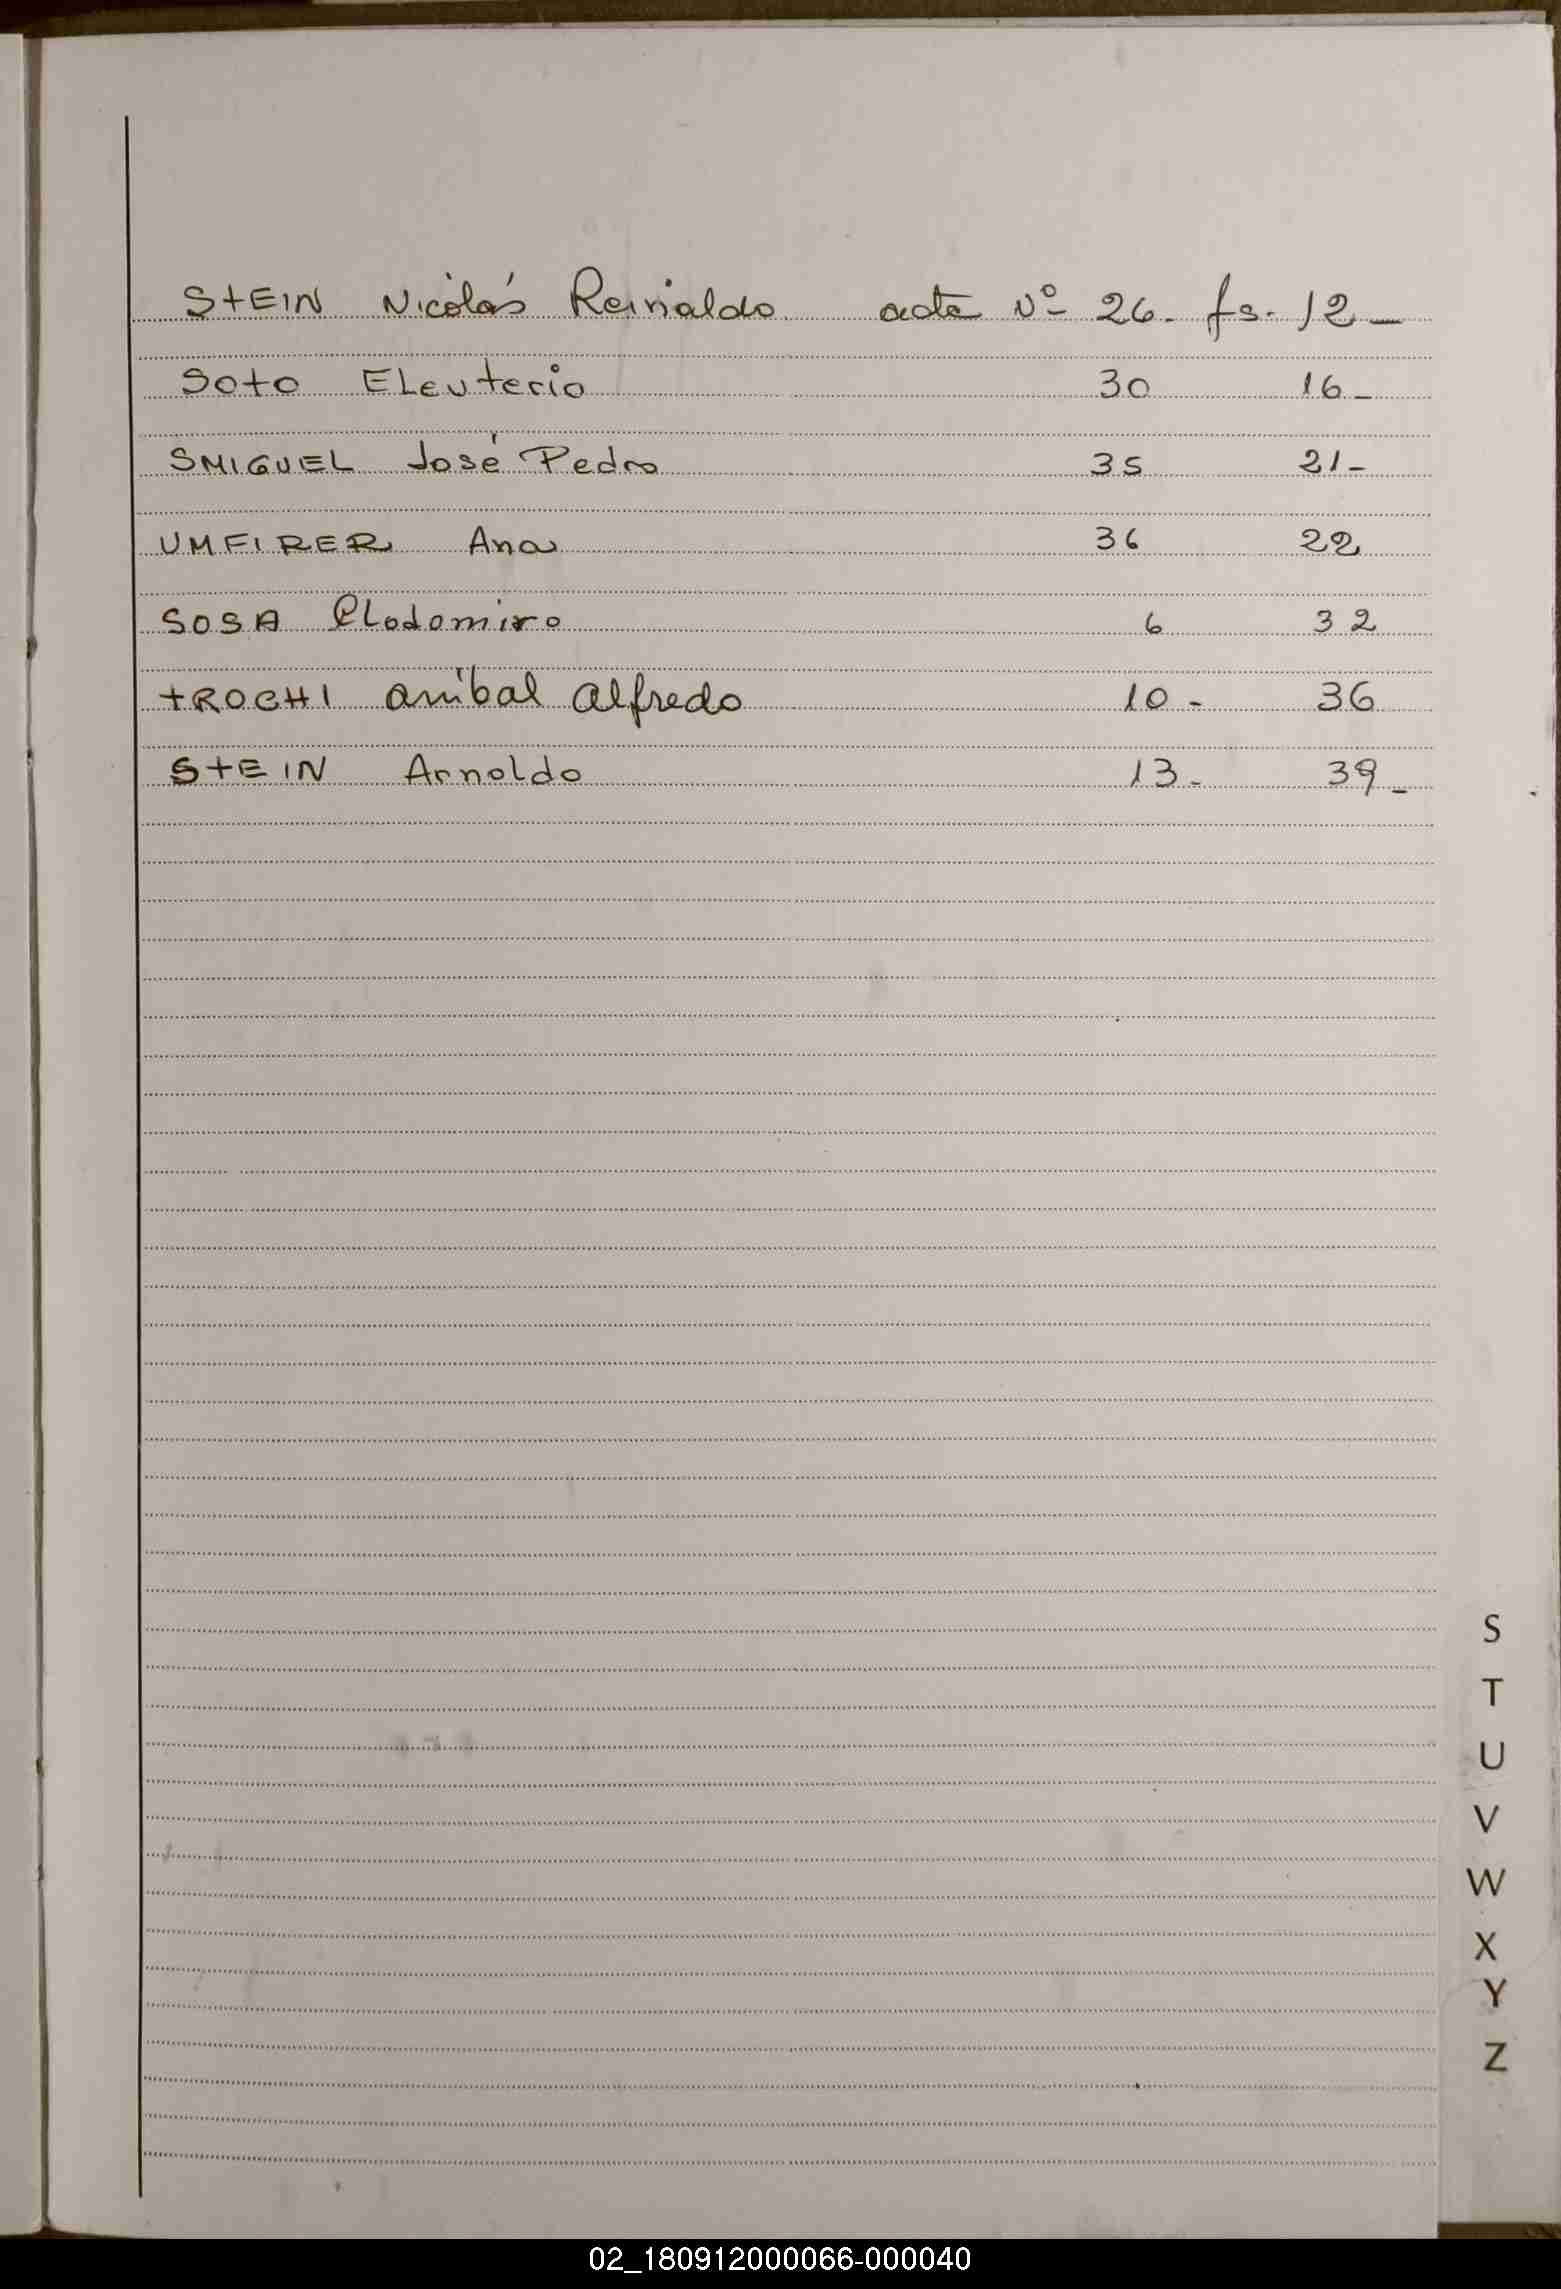 STEIN Nicolás Reinaldo acta Nº 26. fs. 12_
SOTO ELeuterio 30 16_
SMIGUEL José Pedro 35 21_
UMFIRER Ana 36 22
SOSA CLodomiro 6 32
TROCHI anibal alfredo 10- 36
STEIN Arnoldo 13- 39_
S
T
U
V
W
X
Y
Z
02_180912000066-000040